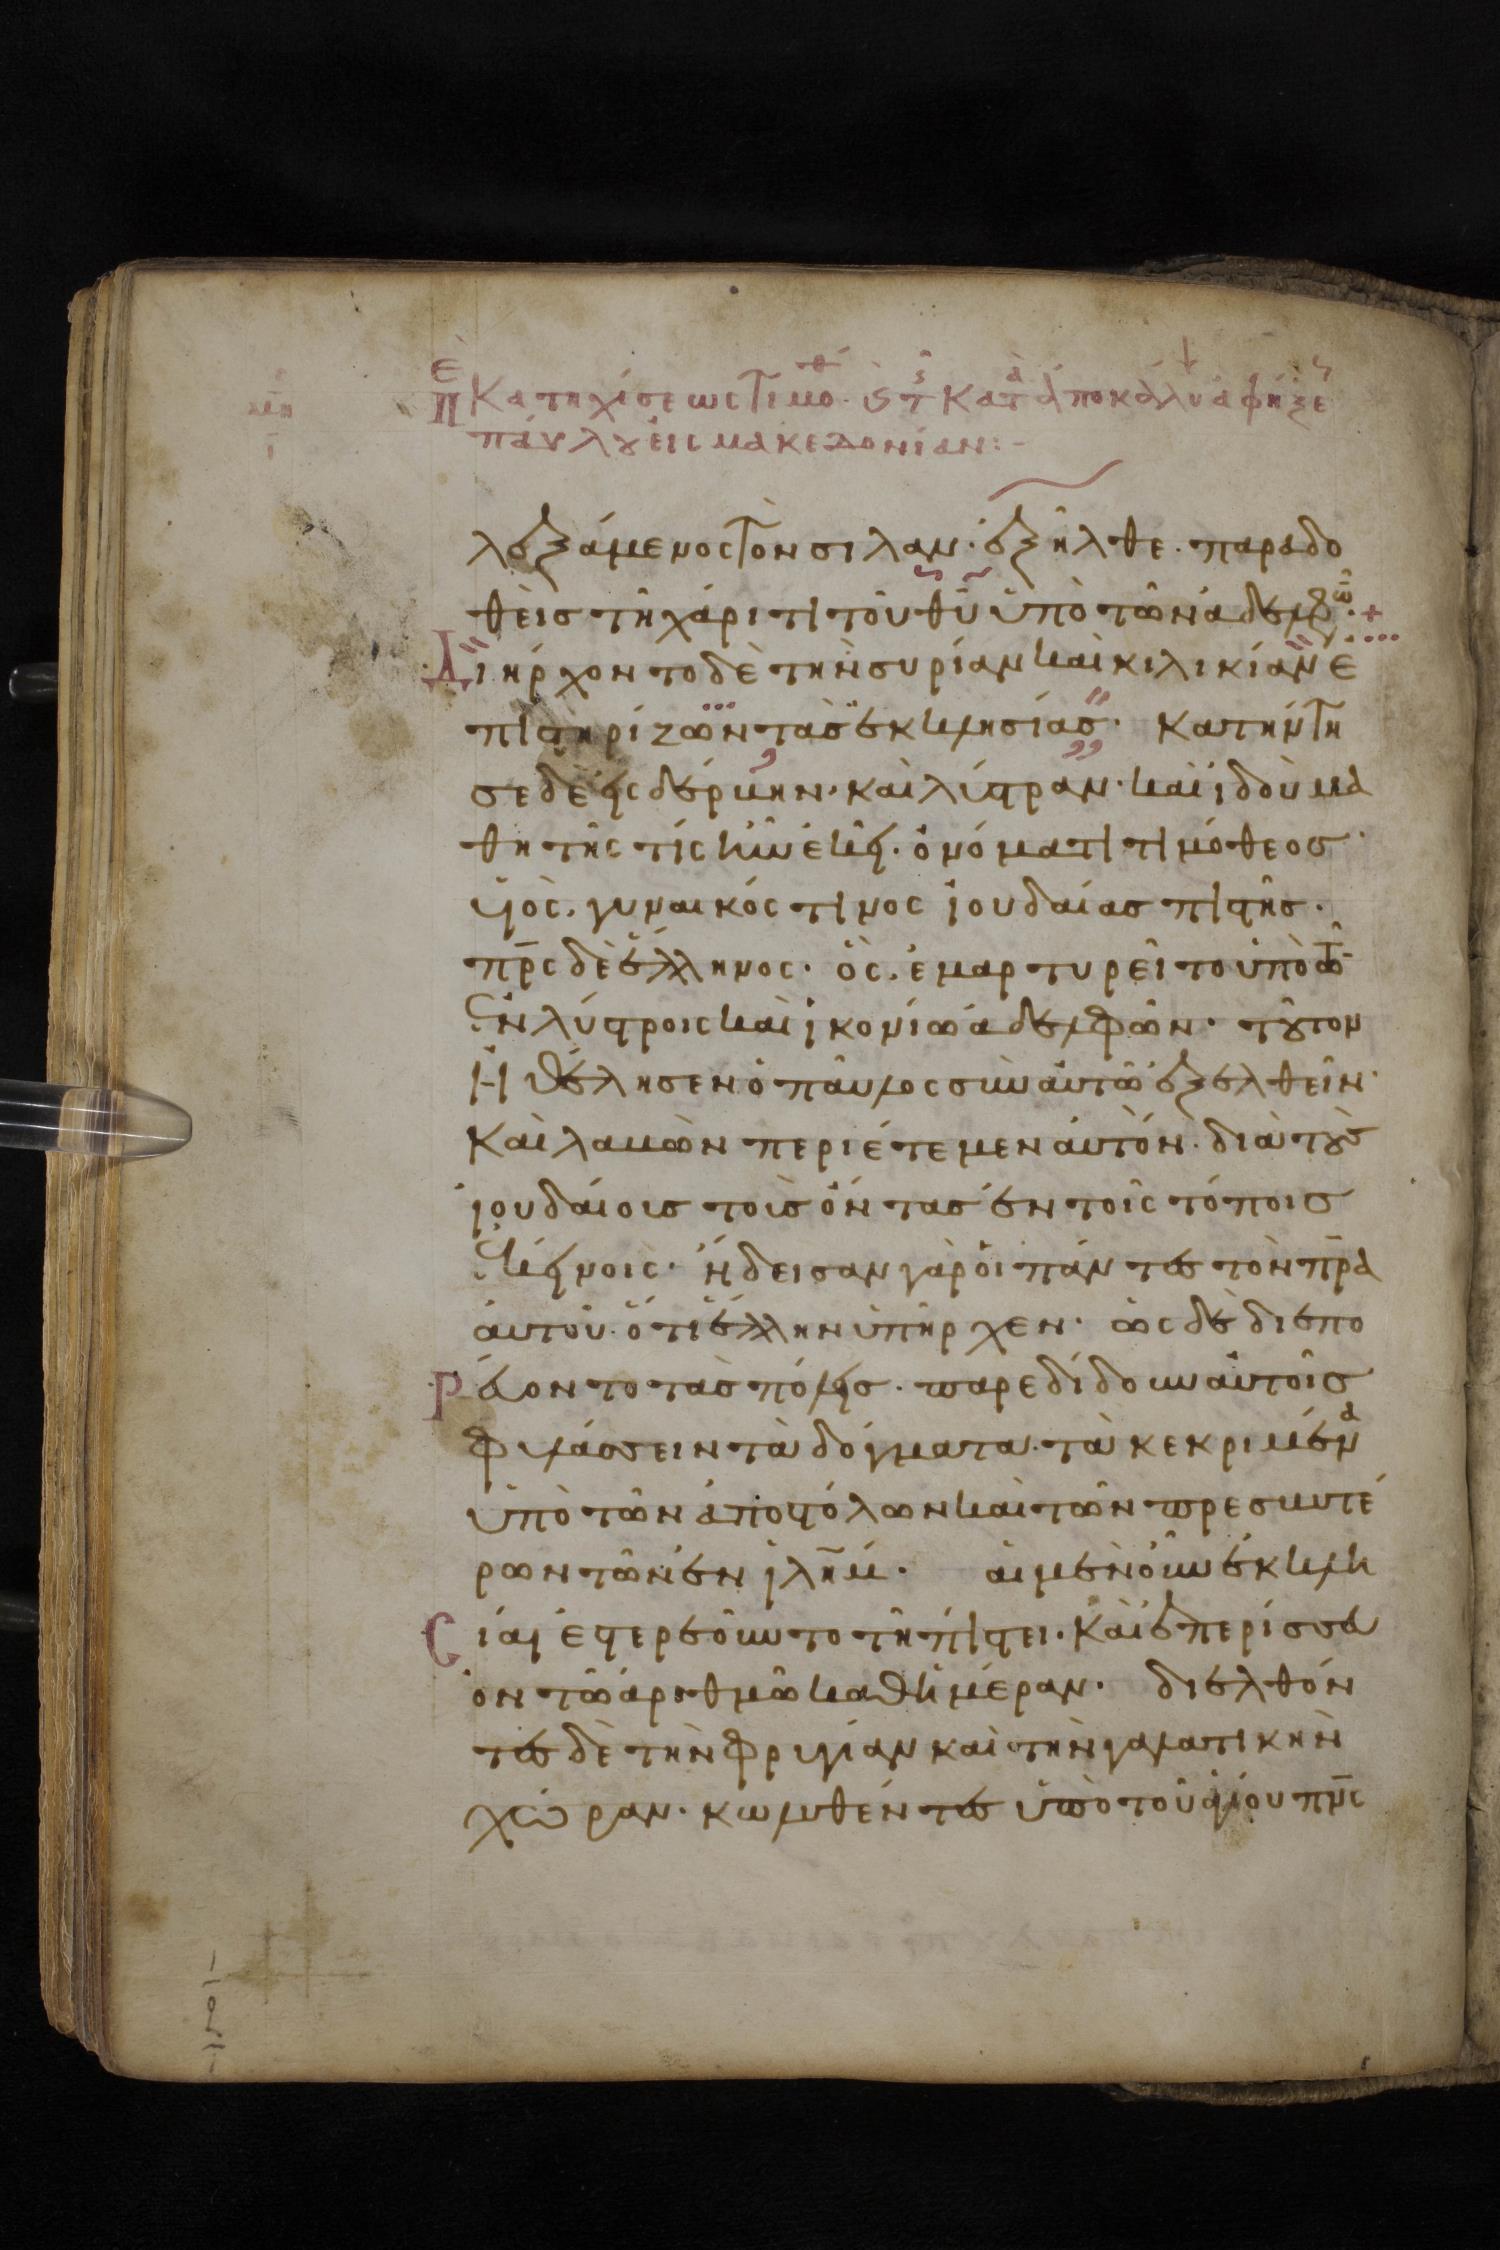 ἐπ Κατηχίσεως τιμοθ. κ τ κατ ἀποκάλυ ἀφήξε
πάυλου ἐις μακεδονίαν:-
λεξάμενος τὸν σίλαν· ἐξῆλθε. παραδο
θεὶς τῆ χάριτι τοῦ θῦ ὑπὸ τῶν ἀδελφῶν·
Διήρχοντο δὲ τὴν συρίαν καὶ κιλικίαν ἐ
πιστηρίζων τὰς ἐκκλησίας· κατήντη
σε δὲ εἰς δέρβην· καὶ λύστραν· καὶ ἰδοὺ μα
θητής τίς ἦν ἐκεῖ· ὀνόματι τιμόθεος
ὑιὸς. γυναικός τινος ἰουδαίας πιστῆς·
πρ̅ς δὲ ἕλληνος· ὃς. ἐμαρτυρεῖτο ὑπὸ τῶ
ἐν λύστροις καὶ ἰκονίω ἀδελφῶν· τοῦτον
ἠθέλησεν ὁ παῦλος σὺν ἀυτῶ ἐξελθεῖν·
Καὶ λαβὼν περιέτεμεν ἀυτὸν· διὰ τοὺς
ἰουδαίοις τοὶς ὄντας ἐν τοῖς τόποις
ἐκείνοις· ἤδεισαν γὰρ ὁι πάντες τὸν πρ̅α
ἀυτοῦ· ὅτι ἕλλην ὑπῆρχεν· ὡς δὲ διεπο
ρέυοντο τὰς πόλεις· παρεδίδουν ἀυτοῖς
φυλάσσειν τὰ δόγματα· τὰ κεκριμένα
ὑπὸ τῶν ἀποστόλων καὶ τῶν πρεσβυτέ
ρων τῶν ἐν ἰλη̅μ· ἁι μὲν οὖν ἐκκλη
σίαι ἐστερεοῦντο τῆ πίστει· Καὶ ἐπερίσσευ
ον τῶ ἀριθμῶ καθ ἡμέραν· διελθόν
τες δὲ τὴν φρυγίαν καὶ τὴν γαλατικὴν
χώραν· κωλυθέντες ὑπὸ τοῦ ἁγίου πν̅ς